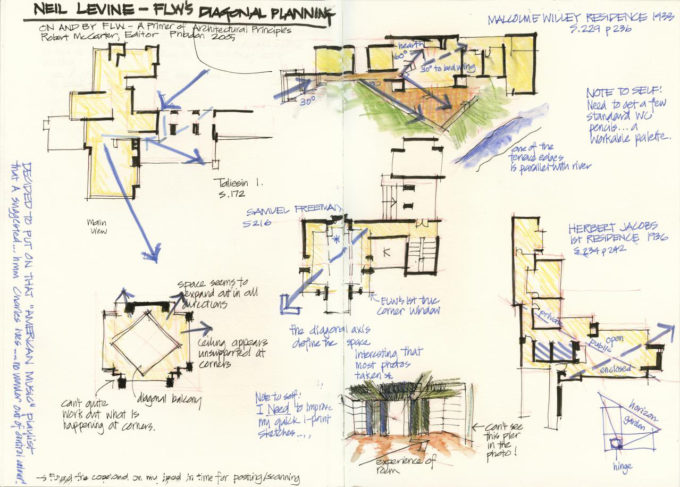 NEIL LEVINE - FLW'S DIAGONAL PLANNING
ON AND BY FLW - A Primer of Architectural Principles
Robert McCarter, Editor Phaidon 2005
MALCOLME WILLEY RESIDENCE 1933
S.229 p236
hearth
60°
30° to bed wing
30°
NOTE TO SELF!
Need to get a few
standard WC
pencils... a
workable palette.
one of the
terrace edges
is parallel with river
Taliesin 1.
S.172
Main
view
SAMUEL FREEMAN
S216
K
FLW's 1st true
corner window
HERBERT JACOBS
1st RESIDENCE 1936
S.234 p242
private
public
open
enclosed
horizon
garden
hinge
space seems to
expand out in all
directions
Ceiling appears
unsupported at
corners
diagonal balcony
can't quite
work out what is
happening at corners.
the diagonal axis
define the space
Interesting that
most photos
taken
Note to self!
I Need to improve
my quick i-print
sketches...
Can't see
this pier
in the
photo!
experience of
room
DECIDED TO PUT ON THAT "AMERICAN MUSIC" playlist
that A suggested... hmm Charles Ives -- no wonder
Found the copeland on my ipod in time for posting/scanning